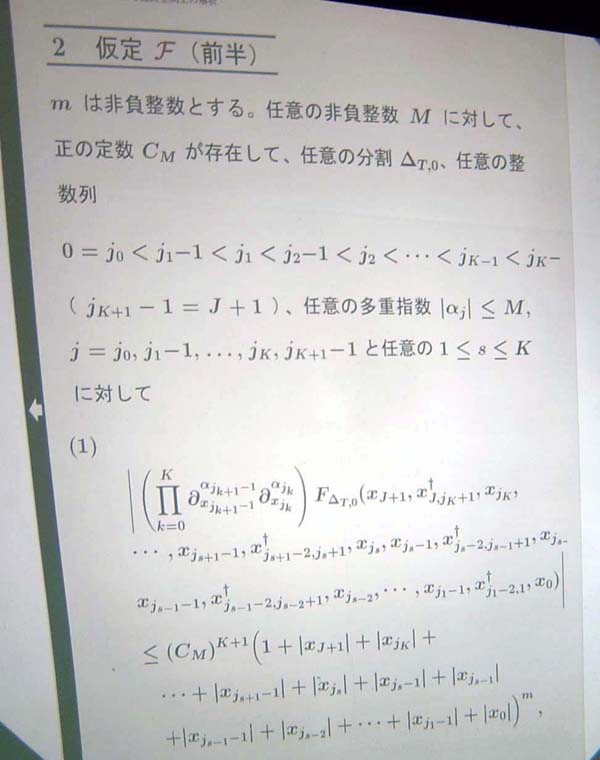 2 仮定 ℱ (前半)
m は非負整数とする。任意の非負整数 M に対して、
正の定数 C_M が存在して、任意の分割 Δ_{T,0}、任意の整
数列
0 = j_0 < j_1−1 < j_1 < j_2−1 < j_2 < ⋯ < j_{K−1} < j_K−
( j_{K+1} − 1 = J + 1 )、任意の多重指数 |α_j| ≤ M,
j = j_0, j_1−1, …, j_K, j_{K+1}−1 と任意の 1 ≤ s ≤ K
に対して
(1)
|(∏_{k=0}^{K} ∂_{x_{j_{k+1}−1}}^{α_{j_{k+1}−1}} ∂_{x_{j_k}}^{α_{j_k}}) F_{Δ_{T,0}}(x_{J+1}, x^†_{J,j_K+1}, x_{j_K},
⋯ , x_{j_{s+1}−1}, x^†_{j_{s+1}−2,j_s+1}, x_{j_s}, x_{j_s−1}, x^†_{j_s−2,j_{s−1}+1}, x_{j_{s−
x_{j_{s−1}−1}, x^†_{j_{s−1}−2,j_{s−2}+1}, x_{j_{s−2}}, ⋯ , x_{j_1−1}, x^†_{j_1−2,1}, x_0)|
≤ (C_M)^{K+1}(1 + |x_{J+1}| + |x_{j_K}| +
⋯ + |x_{j_{s+1}−1}| + |x_{j_s}| + |x_{j_s−1}| + |x_{j_{s−1}}|
+|x_{j_{s−1}−1}| + |x_{j_{s−2}}| + ⋯ + |x_{j_1−1}| + |x_0|)^m ,